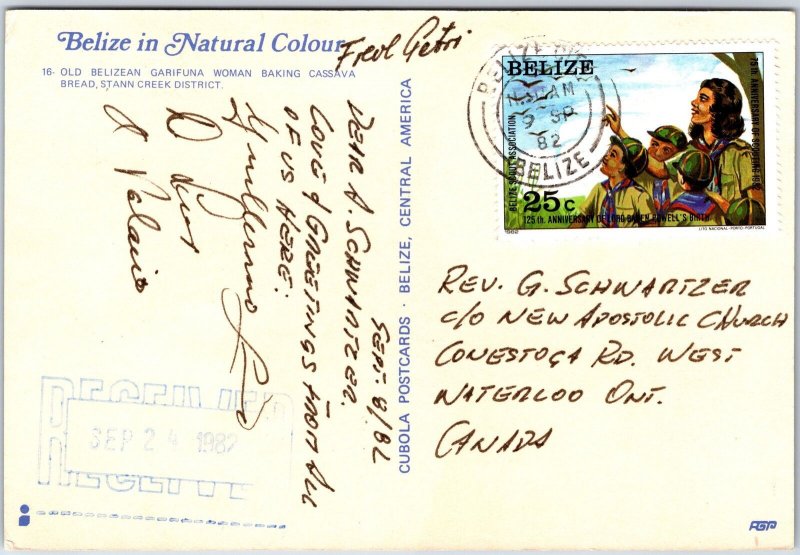 Belize in Natural Colour
16- OLD BELIZEAN GARIFUNA WOMAN BAKING CASSAVA
BREAD, STANN CREEK DISTRICT.
Fred
SEPT. 8/82
DEAR A. SCHWARTZER.
LOVE & GREETINGS FROM ALL
OF US HERE.
Guillermo
D
CUBOLA POSTCARDS · BELIZE, CENTRAL AMERICA
BELIZE
25c
BELIZE SCOUT ASSOCIATION
75th ANNIVERSARY OF SCOUTING 1982
125th. ANNIVERSARY OF LORD BADEN POWELL'S BIRTH
1982
LITO NACIONAL-PORTO-PORTUGAL
BELIZE
AM
9 SP
82
BELIZE
REV. G. SCHWARTZER
C/O NEW APOSTOLIC CHURCH
CONESTOGA RD. WEST
WATERLOO ONT.
CANADA
RECEIVED
SEP 24 1982